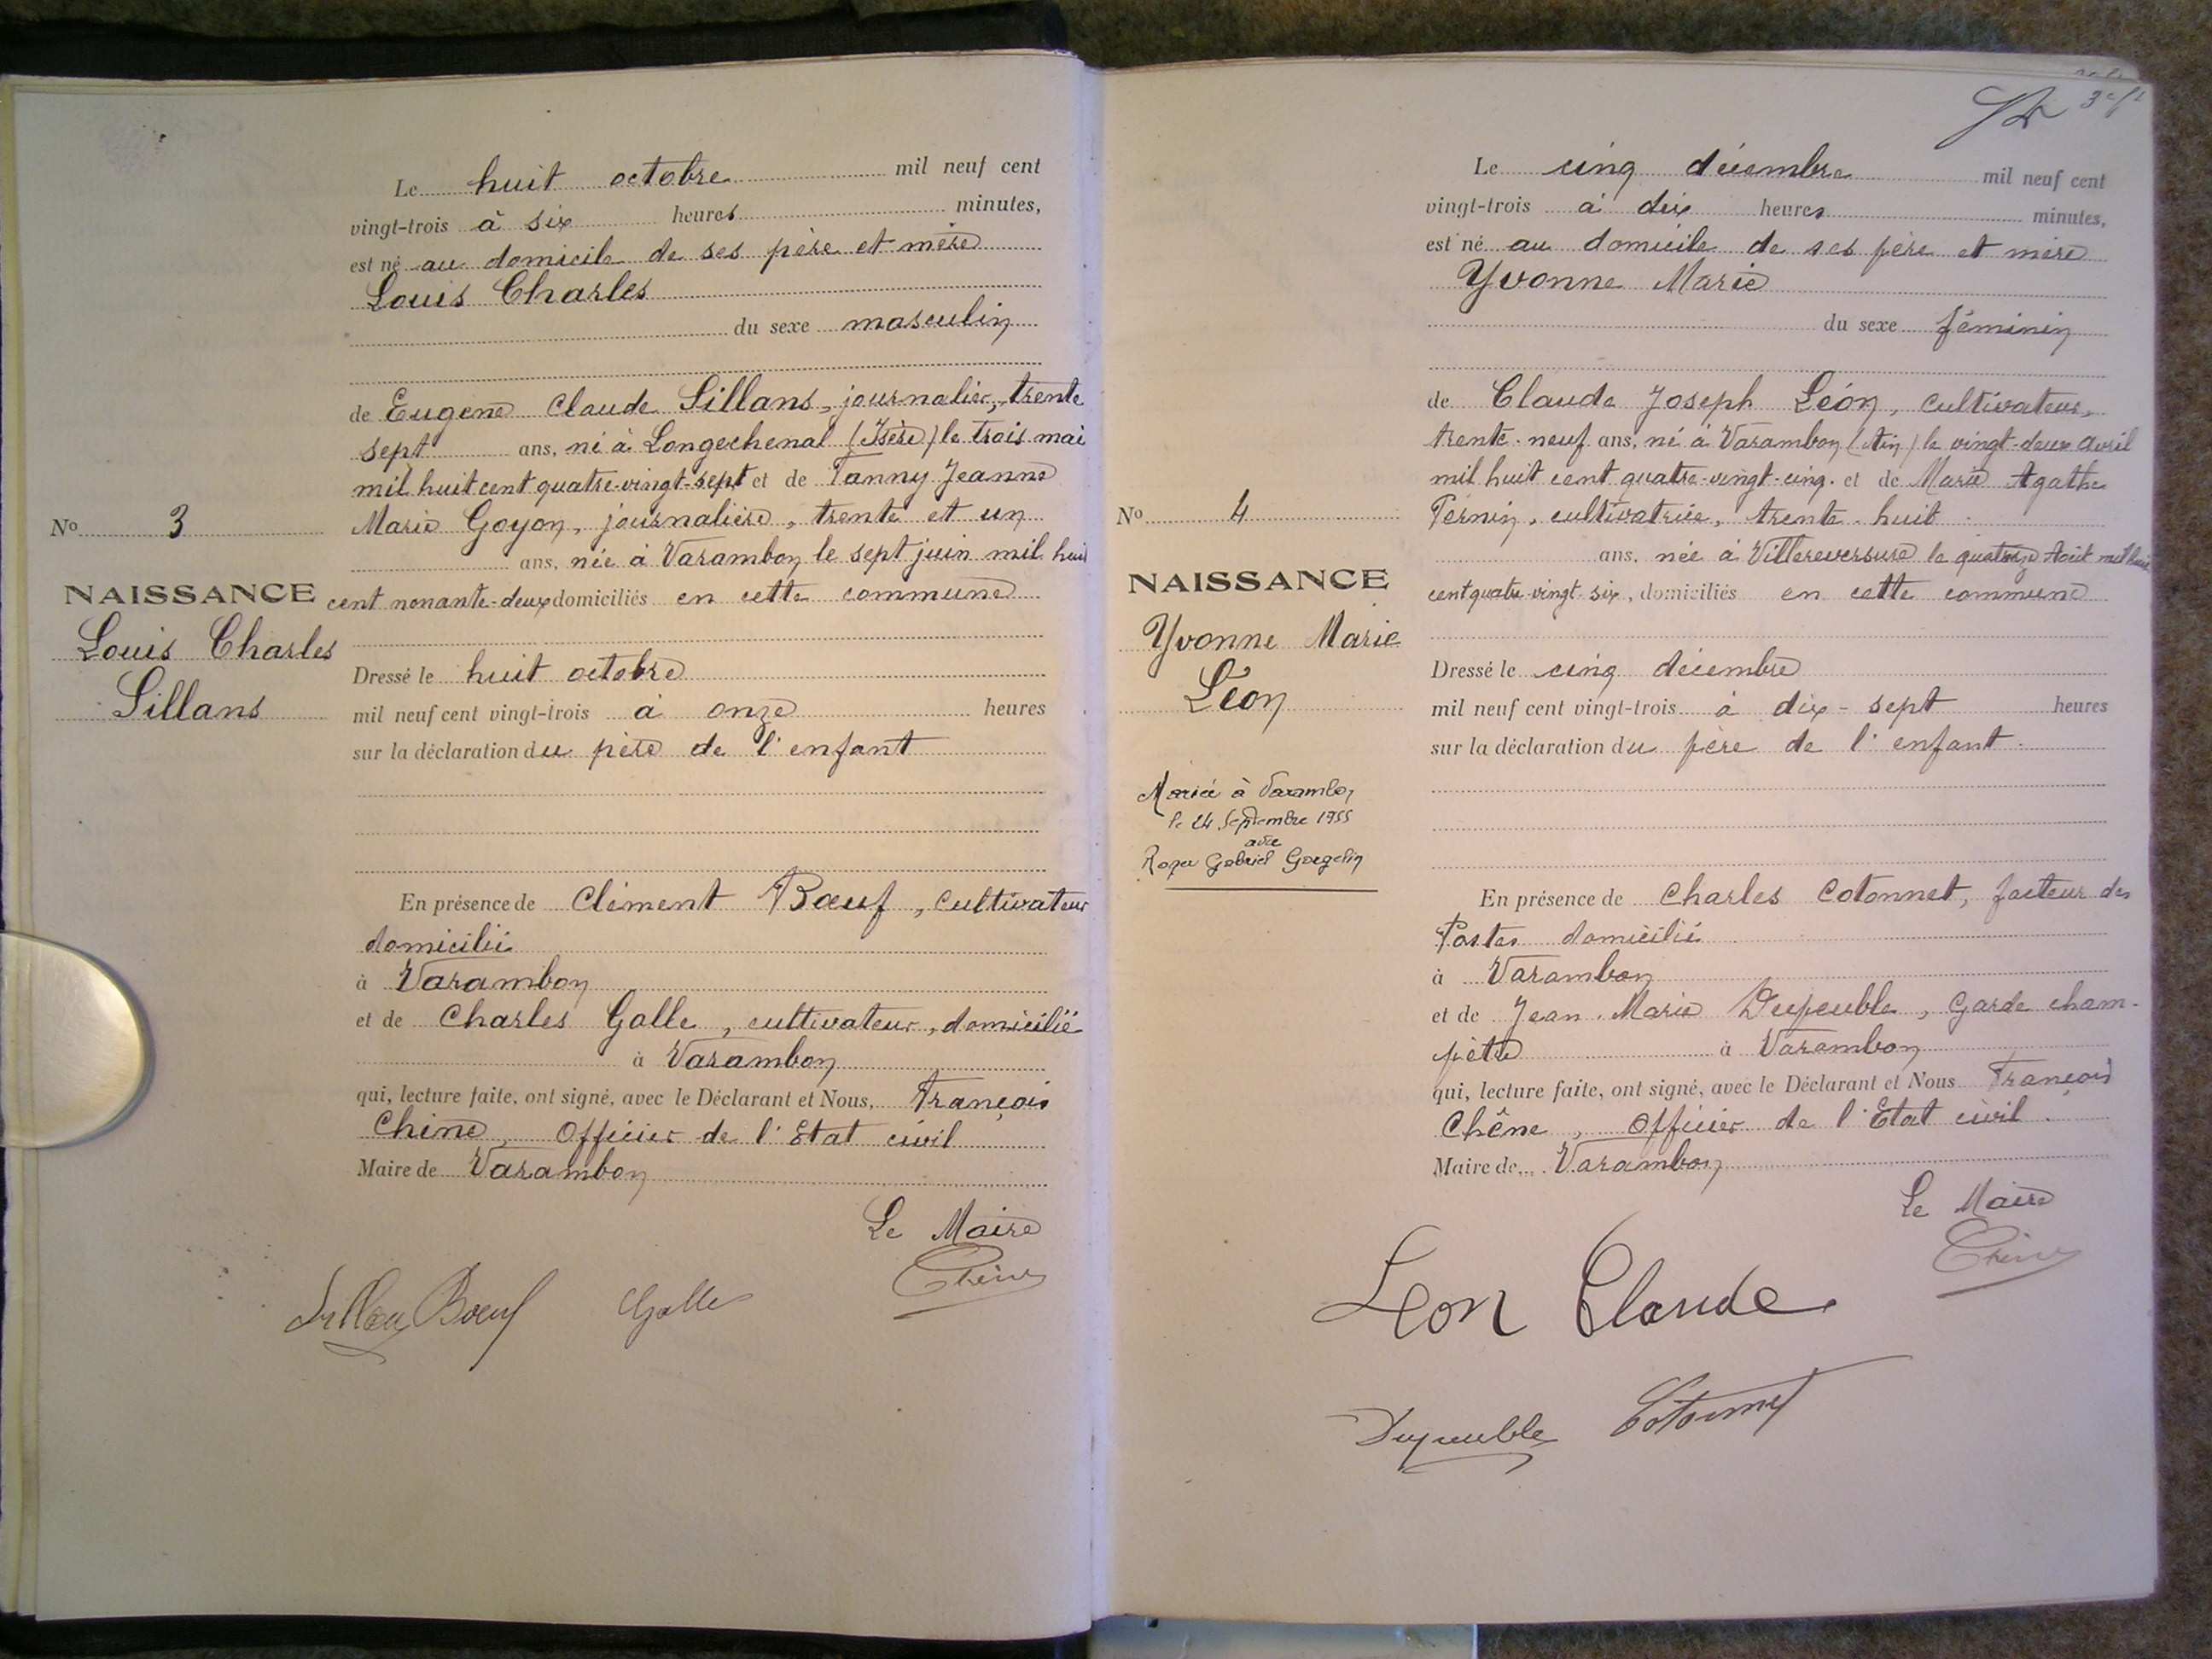 Le huit octobre mil neuf cent
vingt-trois à six heures minutes,
est né au domicile de ses père et mère
Louis Charles
du sexe masculin
de Eugène Claude Sillans, journalier, trente
sept ans, né à Longechenal (Isère) le trois mai
mil huit cent quatre-vingt-sept et de Fanny Jeanne
Marie Goyon, journalière, trente et un
ans, née à Varambon le sept juin mil huit
cent nonante-deux domiciliés en cette commune
No 3
NAISSANCE
Louis Charles
Sillans
Dressé le huit octobre
mil neuf cent vingt-trois à onze heures
sur la déclaration du père de l'enfant
En présence de Clément Bœuf, cultivateur
domicilié
à Varambon
et de Charles Galle, cultivateur, domicilié
à Varambon
qui, lecture faite, ont signé, avec le Déclarant et Nous, François
Chêne, Officier de l'Etat civil
Maire de Varambon
Le Maire
Bœuf Galle Chêne
Le cinq décembre mil neuf cent
vingt-trois à dix heures minutes,
est né au domicile de ses père et mère
Yvonne Marie
du sexe féminin
de Claude Joseph Léon, cultivateur,
trente-neuf ans, né à Varambon (Ain) le vingt-deux avril
mil huit cent quatre-vingt-cinq. et de Marie Agathe
Pernin, cultivatrice, trente-huit
ans, née à Villereversure le quatorze Août mil huit
cent quatre-vingt-six, domiciliés en cette commune
No 4
NAISSANCE
Yvonne Marie
Léon
Mariée à Varambon
le 24 Septembre 1955
avec
Roger Gabriel Goegelin
Dressé le cinq décembre
mil neuf cent vingt-trois à dix-sept heures
sur la déclaration du père de l'enfant.
En présence de Charles Cotonnet, facteur des
Postes domicilié
à Varambon
et de Jean-Marie Dupeuble, Garde cham-
pètre à Varambon
qui, lecture faite, ont signé, avec le Déclarant et Nous François
Chêne, Officier de l'Etat civil.
Maire de Varambon
Le Maire
Chêne
Leon Claude
Dupeuble Cotonnet